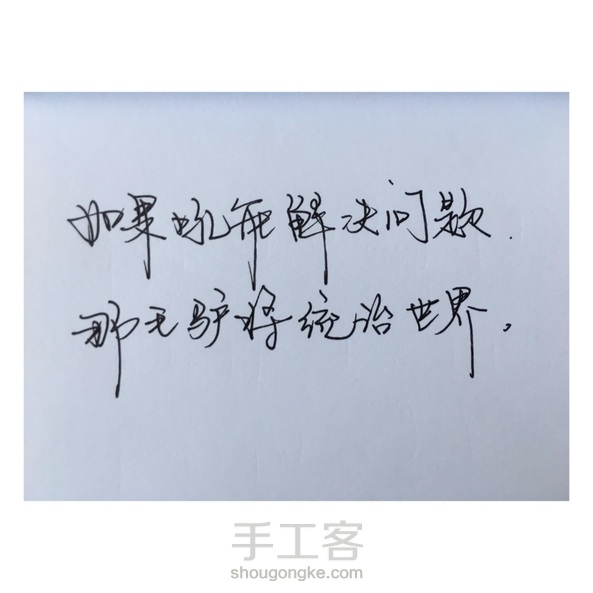 如果吼能解决问题.
那么驴将统治世界。
手工客
shougongke.com